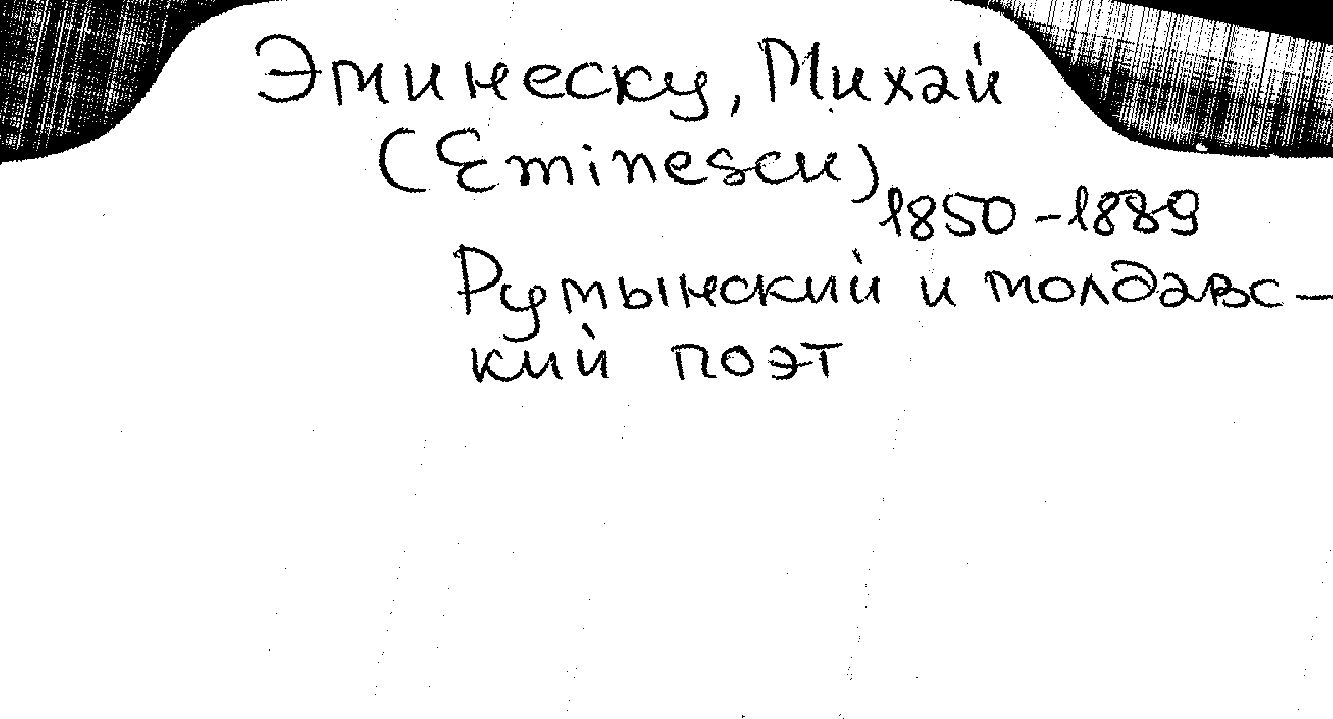 Эминеску, Михай
(Eminescu)
1850-1889
Румынский и молдавс-
кий поэт